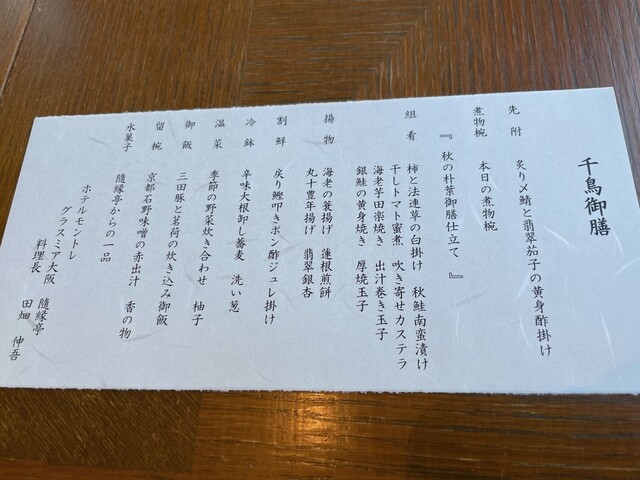 千鳥御膳
先附　炙り〆鯖と翡翠茄子の黄身酢掛け
煮物椀　本日の煮物椀
『 秋の朴葉御膳仕立て 』
組肴　柿と法連草の白掛け　秋鮭南蛮漬け
干しトマト蜜煮　吹き寄せカステラ
海老芋田楽焼き　出汁巻き玉子
銀鮭の黄身焼き　厚焼玉子
揚物　海老の蓑揚げ　蓮根煎餅
丸十豊年揚げ　翡翠銀杏
割鮮　戻り鰹叩きポン酢ジュレ掛け
冷鉢　辛味大根卸し蕎麦　洗い葱
温菜　季節の野菜炊き合わせ　柚子
御飯　三田豚と茗荷の炊き込み御飯
留椀　京都石野味噌の赤出汁　香の物
水菓子　隨縁亭からの一品
ホテルモントレ
グラスミア大阪　隨縁亭
料理長　田畑　伸吾